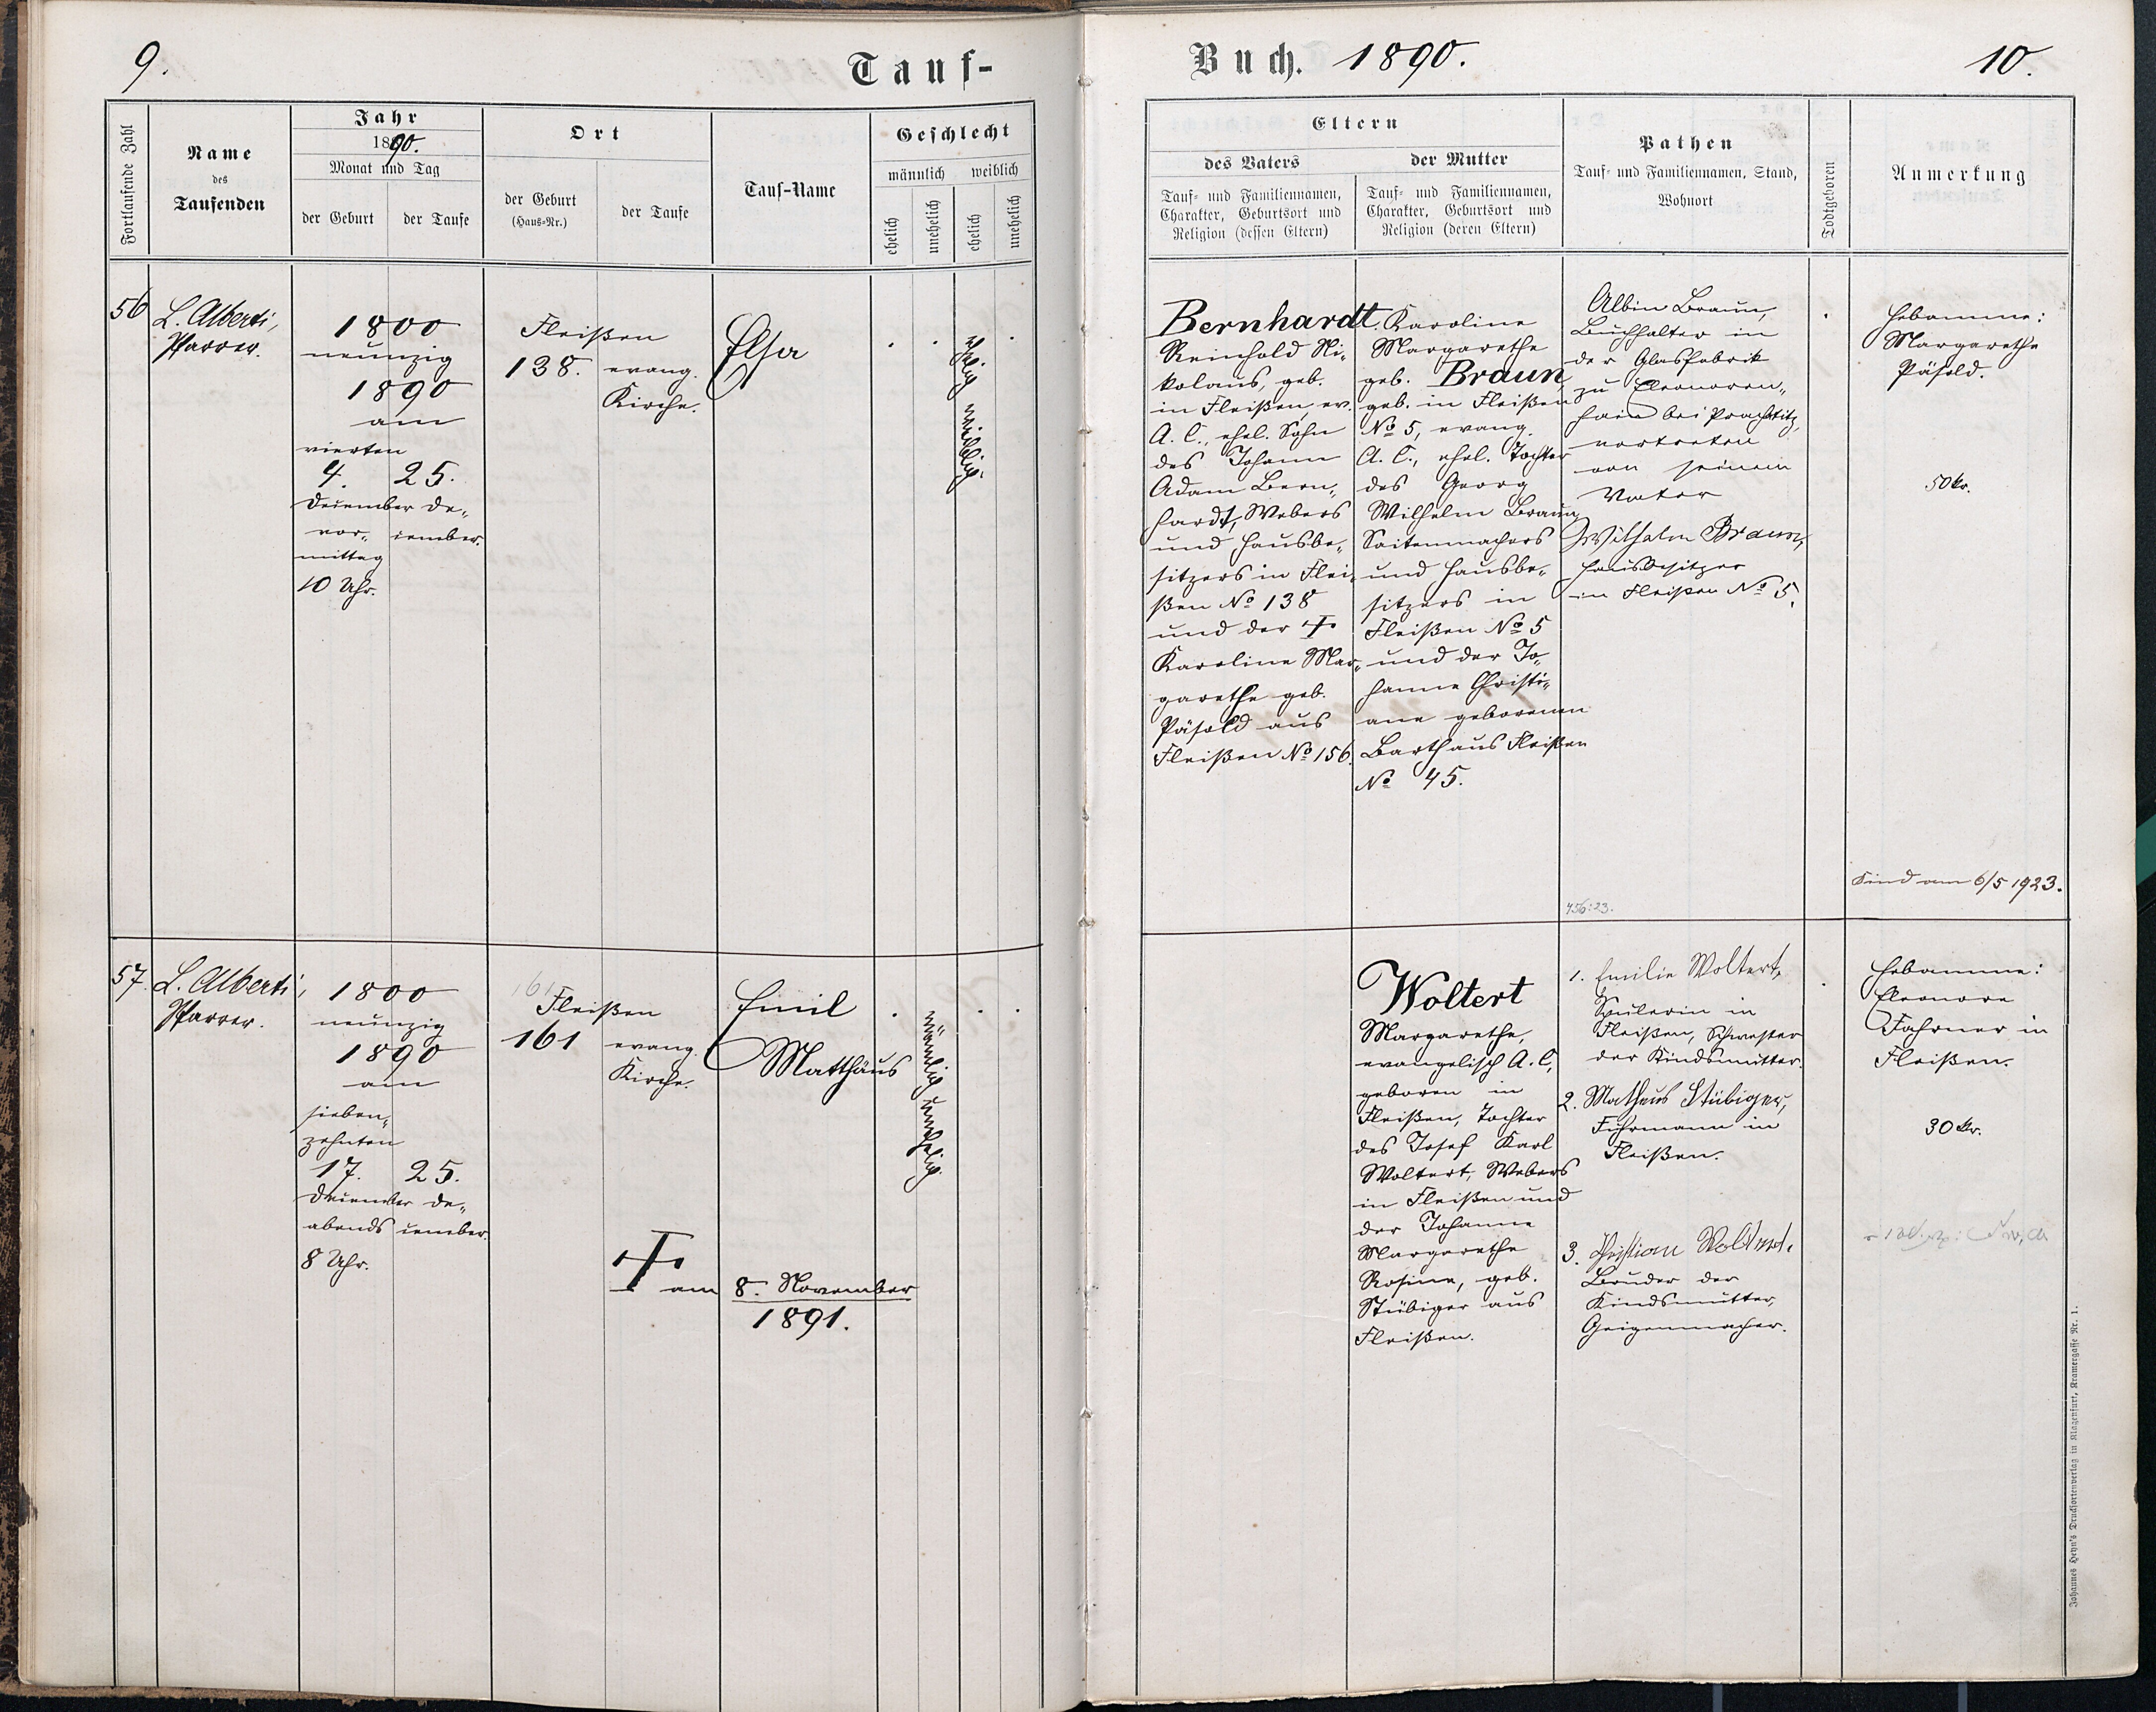 9.
Tauf-
Fortlaufende Zahl
Name
des
Taufenden
Jahr
1890.
Monat und Tag
der Geburt
der Taufe
Ort
der Geburt
(Haus-Nr.)
der Taufe
Tauf-Name
Geschlecht
männlich weiblich
ehelich
unehelich
ehelich
unehelich
56
L. Alberti,
Pfarrer.
1800
neunzig
1890
am
vierten
4. 25.
December De„
vor„ cember.
mittag
10 Uhr.
Fleißen
138. evang.
Kirche.
Elsa
ehelich weiblich.
57.
L. Alberti,
Pfarrer.
1800
neunzig
1890
am
sieben„
zehnten
17. 25.
December De„
abends cember.
8 Uhr.
161
Fleißen
161 evang.
Kirche.
Emil
Matthäus
männlich unehelich.
† am 8. November
1891.
Buch. 1890.
10.
Eltern
des Vaters
Tauf- und Familiennamen,
Charakter, Geburtsort und
Religion (dessen Eltern)
der Mutter
Tauf- und Familiennamen,
Charakter, Geburtsort und
Religion (deren Eltern)
Pathen
Tauf- und Familiennamen, Stand,
Wohnort
Todtgeboren
Anmerkung
Bernhardt
Reinhold Ni„
kolaus, geb.
in Fleißen, ev.
A. C., ehel. Sohn
des Johann
Adam Bern„
hardt, Webers
und Hausbe„
sitzers in Flei„
ßen No 138
und der †
Karoline Mar„
garethe geb.
Päsold aus
Fleißen No 156.
Karoline
Margarethe
geb. Braun,
geb. in Fleißen
No 5, evang.
A. C., ehel. Tochter
des Georg
Wilhelm Braun,
Saitenmachers
und Hausbe„
sitzers in
Fleißen No 5
und der Jo„
hanne Christi„
ane geborenen
Barth aus Fleißen
No 45.
Albin Braun,
Buchhalter in
der Glasfabrik
zu Eleonoren„
hain bei Prachatitz,
vertreten
von seinem
Vater
Wilhelm Braun,
Hausbesitzer
in Fleissen No 5.
456:23.
Hebamme:
Margarethe
Päsold.
50 kr.
Kind am 6/5 1923.
Woltert
Margarethe,
evangelisch A. C.,
geboren in
Fleißen, Tochter
des Josef Karl
Woltert, Webers
in Fleißen und
der Johanne
Margarethe
Rosine, geb.
Stübiger aus
Fleißen.
1. Emilie Woltert,
Spulerin in
Fleißen, Schwester
der Kindsmutter.
2. Matheus Stübiger,
Fuhrmann in
Fleißen.
3. Christian Woltert,
Bruder der
Kindsmutter,
Geigenmacher.
Hebamme:
Eleonore
Fahrner in
Fleißen.
30 kr.
Johannes Heyn's Drucksortenverlag in Klagenfurt, Kramergasse Nr. 1.